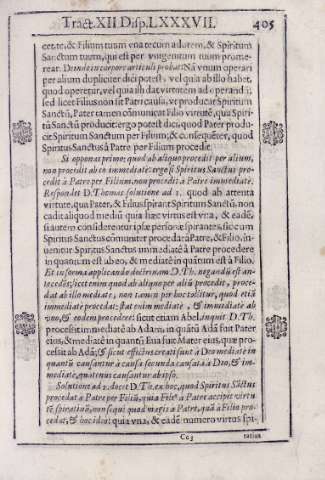 Tract. XII Disp. LXXXVII. 405
cet te, & Filium tuum vna tecum adorem, & Spiritum
Sanctum tuum, qui est per vnigenitum tuum prome-
rear. Deinde in corpore articuli probat: Nã vnum operari
per alium dupliciter dici potest, vel quia ab illo habet,
quod operetur, vel quia illi dat virtutem ad operandũ;
sed licet Filius non sit Patri causa, vt producat Spiritum
Sanctũ, Pater tamen cõmunicat Filio virtutẽ, qua Spiri-
tũ Sanctũ producit: ergo potest dici, quod Pater produ-
cit Spiritum Sanctum per Filium; & consequẽter, quod
Spiritus Sanctus à Patre per Filium procedit.
Si opponas primo: quod ab aliquo procedit per alium,
non procedit ab eo immediatè: ergo si Spiritus Sanctus pro-
cedit à Patre per Filium, non procedit à Patre immediatè.
Respondet D. Thomas solutione ad 1. quod ab attenta
virtute, qua Pater, & Filius spirant Spiritum Sanctũ, non
cadit aliquod mediũ quia hæc virtus est vna, & eadẽ,
si autem considerentur ipsæ personæ spirantes, sic cum
Spiritus Sanctus cõmuniter procedat à Patre, & Filio, in-
uenitur Spiritus Sanctus immediatè à Patre procedere
in quantum est ab eo, & mediatè in quãtum est à Filio.
Et in forma applicando doctrinam D. Th. negandũ est an-
tecedẽs; licet enim quod ab aliquo per aliũ procedit, proce-
dat ab illo mediatè, non tamen per hoc tollitur, quod etiã
immediatè procedat; stat enim mediatè, & immediatè ab
vno, & eodem procedere: sicut etiam Abel, inquit D. Th.
processit immediatè ab Adam, in quãtũ Adã fuit Pater
eius, & mediatè in quantũ Eua fuit Mater eius, quæ pro-
cessit ab Adã; & sicut effectus creati sunt à Deo mediatè in
quantũ causantur à causa secunda causata à Deo, & im-
mediatè, quatenus causantur ab ipso.
Solutione ad 2. docet D. Th. ex hoc, quod Spiritus Sãctus
procedat à Patre per Filiũ, quia Filius à Patre accipit virtu-
tẽ spiratiuã, non sequi quod magis à Patre, quã à Filio pro-
cedat, & hoc ideò: quia vna, & eadẽ numero virtus spi-
Cc3 ratiua